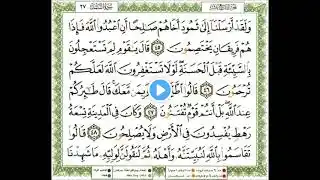 ٢٧
وَلَقَدْ أَرْسَلْنَآ إِلَىٰ ثَمُودَ أَخَاهُمْ صَٰلِحًا أَنِ ٱعْبُدُوا۟ ٱللَّهَ فَإِذَا
هُمْ فَرِيقَانِ يَخْتَصِمُونَ ٤٥ قَالَ يَٰقَوْمِ لِمَ تَسْتَعْجِلُونَ
بِٱلسَّيِّئَةِ قَبْلَ ٱلْحَسَنَةِ لَوْلَا تَسْتَغْفِرُونَ ٱللَّهَ لَعَلَّكُمْ
تُرْحَمُونَ ٤٦ قَالُوا۟ مَّعَكَ قَالَ طَٰٓئِرُكُمْ
عِندَ ٱللَّهِ بَلْ أَنتُمْ قَوْمٌ تُفْتَنُونَ ٤٧ وَكَانَ فِى ٱلْمَدِينَةِ تِسْعَةُ
رَهْطٍ يُفْسِدُونَ فِى ٱلْأَرْضِ وَلَا يُصْلِحُونَ ٤٨
تَقَاسَمُوا۟ بِٱللَّهِ لَنُبَيِّتَنَّهُۥ وَأَهْلَهُۥ ثُمَّ لَنَقُولَنَّ لِوَلِيِّهِۦ مَا شَهِدْنَا